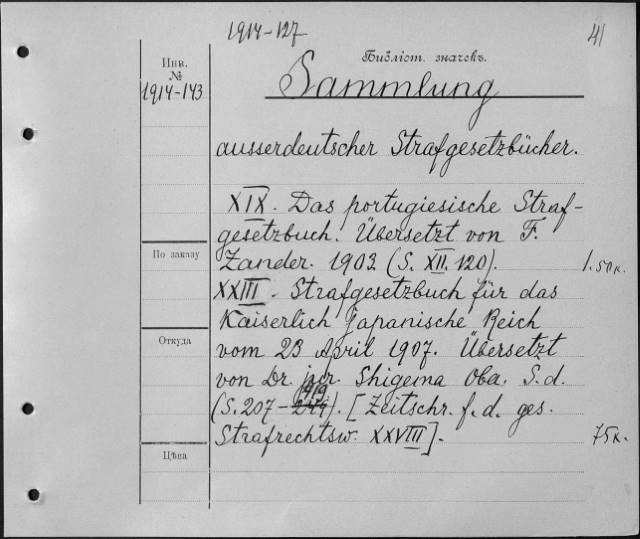 1914-127
41
Библіот. значекъ.
Инв.
№
1914-143
Sammlung
ausserdeutscher Strafgesetzbücher.
XIX. Das portugiesische Straf-
gesetzbuch. Übersetzt von F.
Zander. 1903. (S. XII. 120). 1.50к.
По заказу
XXIII. Strafgesetzbuch für das
Kaiserlich Japanische Reich
Откуда
vom 23 April 1907. Übersetzt
von Dr. jur. Shigema Oba. S. d.
(S. 207- 419). [Zeitschr. f. d. ges.
Strafrechtsw. XXVIII]. 75к.
Цѣна